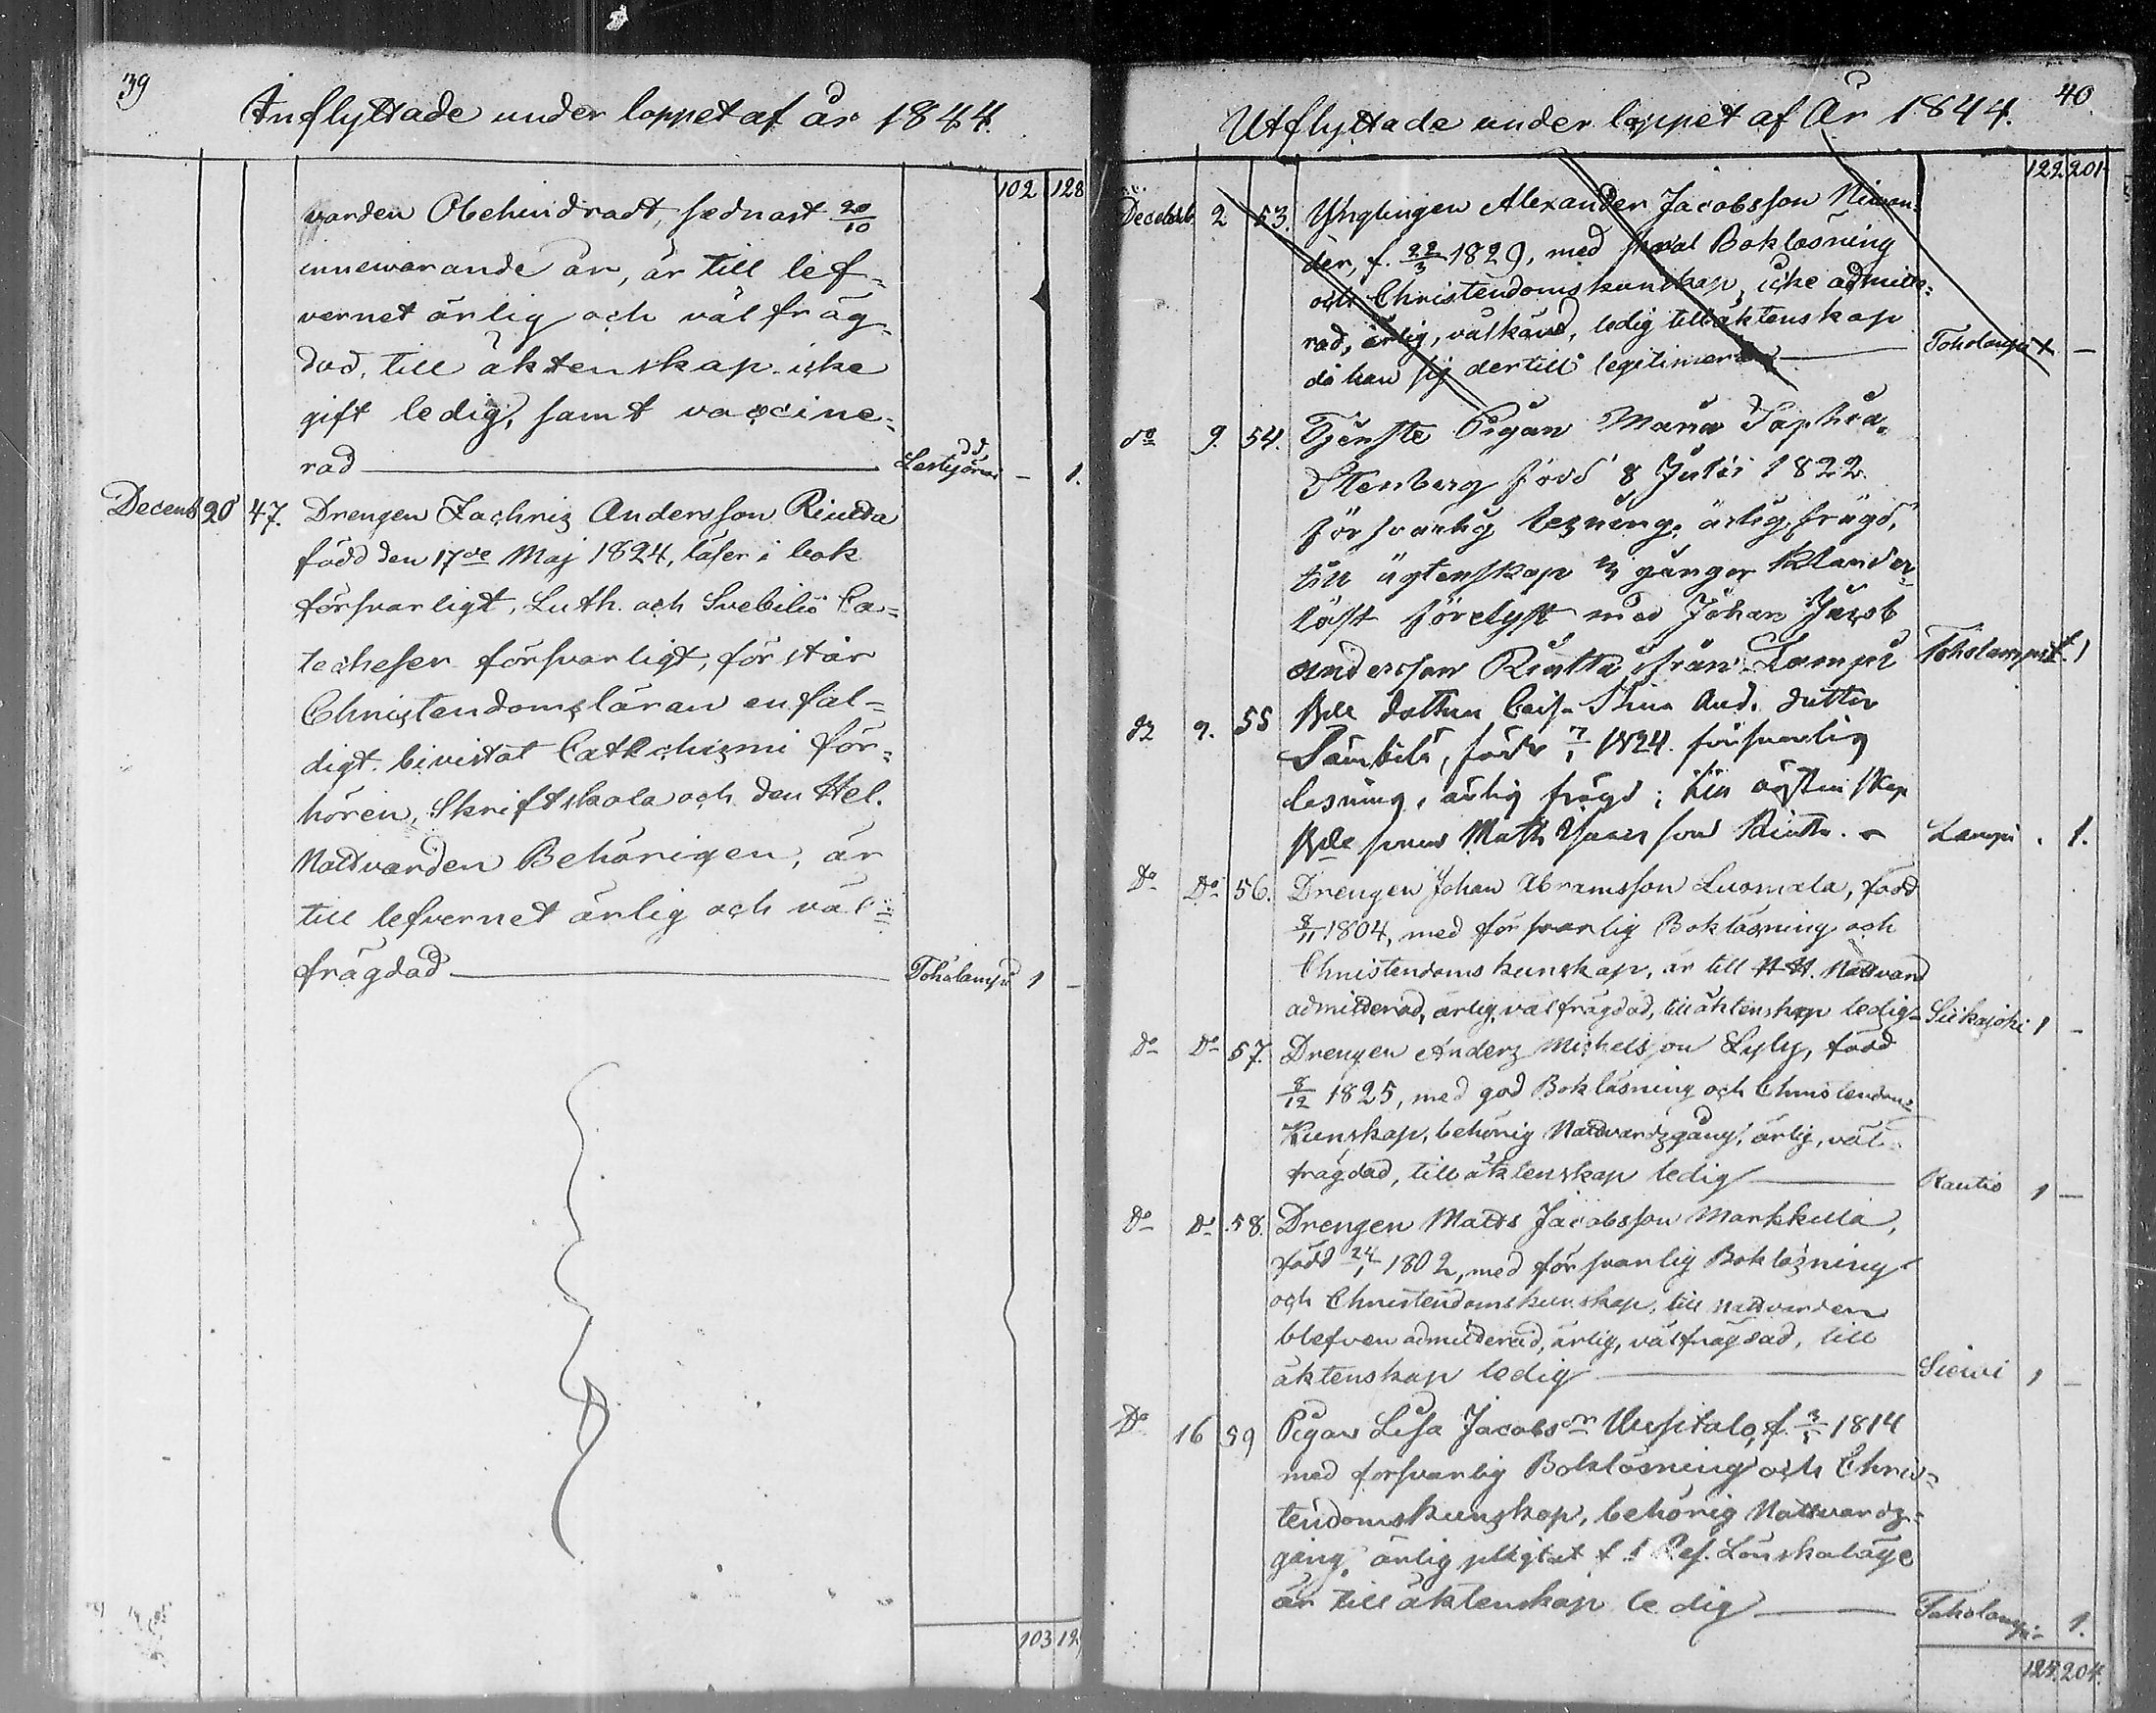 39
Inflyttade under loppet af år 1844.
102 128
varden Obehindradt, sednast 20/10
innevarande år, är till lef-
vernet ärlig och välfräg-
dad, till äktenskap icke
gift ledig, samt vaccine-
rad Lestijärvi - 1.
Decemb 20 47. Drengen Zachris Andersson Rinda
född den 17de Maj 1824, läser i bok
försvarligt, Luth. och Svebilii Ca-
techeser försvarligt, förstår
Christendomsläran enfal-
digt. bivistat Catechismi för-
hören, Skriftskola och den Hel.
Nattvarden Behörigen, är
till lefvernet ärlig och väl-
frägdad Toholampi 1 -
103 129
40
Utflyttade under loppet af År 1844.
122 201
Decemb. 2 53. Ynglingen Alexander Jacobsson Niman-
der, f. 22/3 1829, med Boklasning
och Christendomskunskap, icke admitte-
rad, ärlig, välkänd, ledig till äktenskap
då han sig dertill legitimerar Toholampi 1 -
do 9. 54. Tjenste Pigan Maria Sophia
Stenberg född 8 Julii 1822.
försvarlig lesning, ärlig frägd,
till ägtenskap 3 gånger klander-
löst förelyst med Johan Jacob
andersson Rintta från Lampi Toholampi 1
do 9. 55 dottren Caisa Stina And. dotter
född 7/1 1824. försvarlig
lesning, ärlig frägd; till ägtenskap
sonen Matts Rintta. Lampi . 1.
Do Do 56. Drengen Johan Abramsson Luomala, född
8/11 1804, med försvarlig Bokläsning och
Christendomskunskap, är till H. H. Nattvard
admitterad, ärlig, välfrägdad, till äktenskap ledig Siikajoki 1 -
Do Do 57. Drengen Anders Michelsson Lyly, född
8/12 1825, med god Bokläsning och Christendoms
Kunskap, behörig Nattvardsgång, ärlig, väl-
frägdad, till äktenskap ledig Rautio 1 -
Do Do 58. Drengen Matts Jacobsson Markkula,
född 24/1 1802, med försvarlig Boklasning
och Christendomskunskap, till nattvarden
blefven admitterad, ärlig, välfrägdad, till
äktenskap ledig Sievi 1 -
Do 16 59 Pigan Lisa Jacobsdr Uusitalo, f. 3/1 1814
med försvarlig Bokläsning och Chris-
tendomskunskap, behörig Nattvards-
gång, ärlig pligtat f. 1 Ref. Lönskaläge
är till äktenskap ledig Toholampi - 1.
125. 204.